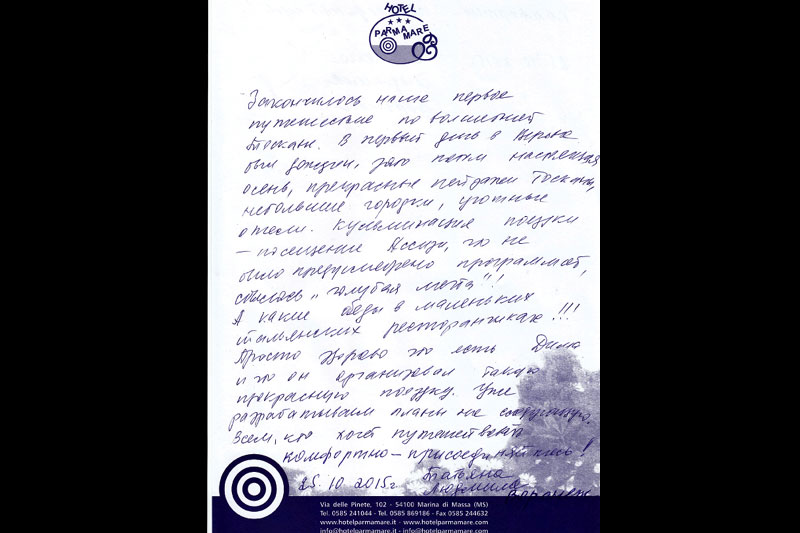 HOTEL
PARMA MARE
Закончилось наше первое
путешествие по волшебной
Тоскане. В первый день в Вероне
был дождик, зато потом настоящая
осень, прекрасные пейзажи Тосканы,
небольшие городки, уютные
отели. Кульминация поездки
– посещение Ассизи, что не
было предусмотрено программой,
сбылась „голубая мечта"!!
А какие обеды в маленьких
итальянских ресторанчиках!!!
Просто здорово что есть Дима
и что он организовал такую
прекрасную поездку. Уже
разрабатываем планы на следующую.
Всем, кто хочет путешествовать
комфортно – присоединяйтесь!
25.10.2015г Татьяна
Людмила
Via delle Pinete, 102 - 54100 Marina di Massa (MS)
Tel. 0585 241044 - Tel. 0585 869186 - Fax 0585 244632
www.hotelparmamare.it - www.hotelparmamare.com
info@hotelparmamare.it - info@hotelparmamare.com